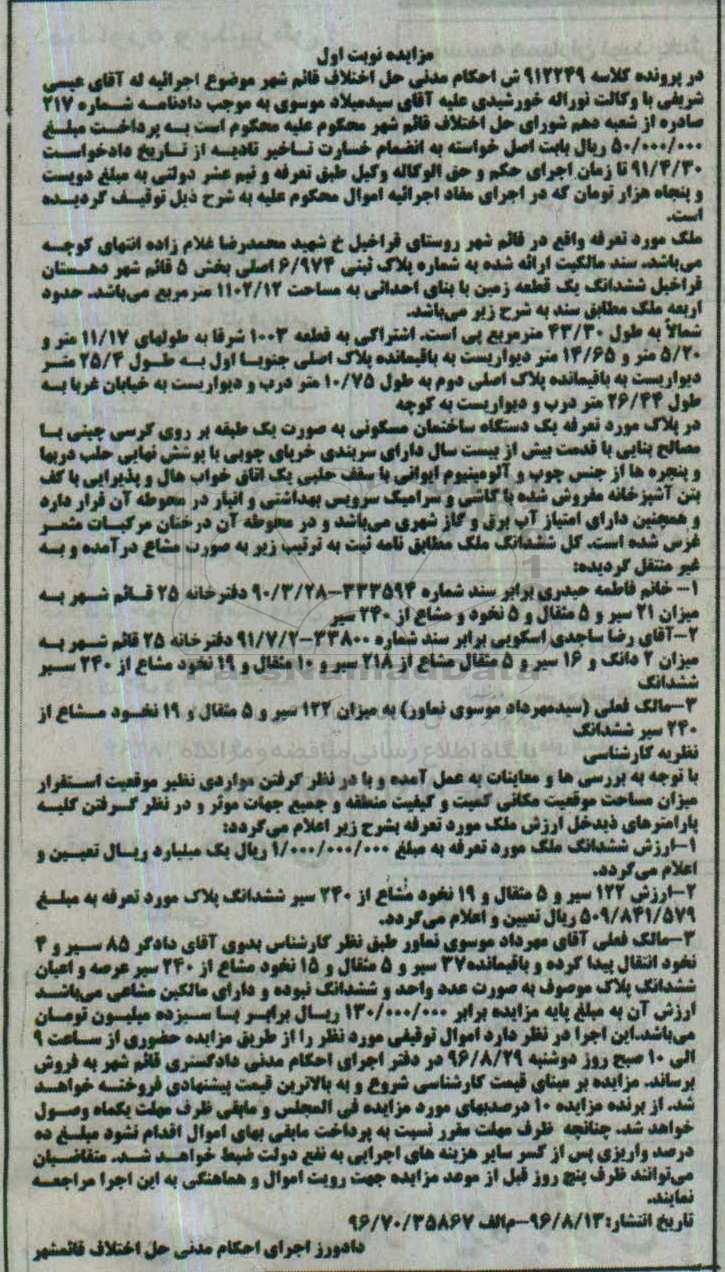 مزایده نوبت اول
در پرونده کلاسه ۹۱۲۲۴۹ ش احکام مدنی حل اختلاف قائم شهر موضوع اجرائیه له آقای عیسی
شریفی با وکالت نوراله خورشیدی علیه آقای سیدمیلاد موسوی به موجب دادنامه شماره ۲۱۷
صادره از شعبه دهم شورای حل اختلاف قائم شهر محکوم علیه محکوم است به پرداخت مبلغ
۵۰/۰۰۰/۰۰۰ ریال بابت اصل خواسته به انضمام خسارت تاخیر تادیه از تاریخ دادخواست
۹۱/۴/۳۰ تا زمان اجرای حکم و حق الوکاله وکیل طبق تعرفه و نیم عشر دولتی به مبلغ دویست
و پنجاه هزار تومان که در اجرای مفاد اجرائیه اموال محکوم علیه به شرح ذیل توقیف گردیده
است.
ملک مورد تعرفه واقع در قائم شهر روستای قراخیل خ شهید محمدرضا غلام زاده انتهای کوچه
می‌باشد. سند مالکیت ارائه شده به شماره پلاک ثبتی ۶/۹۷۴ اصلی بخش ۵ قائم شهر دهستان
قراخیل ششدانگ یک قطعه زمین با بنای احداثی به مساحت ۱۱۰۲/۱۲ مترمربع می‌باشد. حدود
اربعه ملک مطابق سند به شرح زیر می‌باشد.
شمالاً به طول ۴۳/۳۰ مترمربع پی است. اشتراکی به قطعه ۱۰۰۳ شرقا به طولهای ۱۱/۱۷ متر و
۵/۲۰ متر و ۱۴/۶۵ متر دیواریست به باقیمانده پلاک اصلی جنوبا اول به طول ۲۵/۴ متر
دیواریست به باقیمانده پلاک اصلی دوم به طول ۱۰/۷۵ متر درب و دیواریست به خیابان غربا به
طول ۲۶/۴۴ متر درب و دیواریست به کوچه
در پلاک مورد تعرفه یک دستگاه ساختمان مسکونی به صورت یک طبقه بر روی کرسی چینی با
مصالح بنایی با قدمت بیش از بیست سال دارای سربندی خرپای چوبی با پوشش نهایی حلب دربها
و پنجره ها از جنس چوب و آلومینیوم ایوانی با سقف حلبی یک اتاق خواب هال و پذیرایی با کف
بتن آشپزخانه مفروش شده با کاشی و سرامیک سرویس بهداشتی و انبار در محوطه آن قرار دارد
و همچنین دارای امتیاز آب برق و گاز شهری می‌باشد و در محوطه آن درختان مرکبات مثمر
غرس شده است. کل ششدانگ ملک مطابق نامه ثبت به ترتیب زیر به صورت مشاع درآمده و به
غیر منتقل گردیده:
۱- خانم فاطمه حیدری برابر سند شماره ۳۳۳۵۹۴-۹۰/۳/۲۸ دفترخانه ۲۵ قائم شهر به
میزان ۲۱ سیر و ۵ مثقال و ۵ نخود و مشاع از ۲۴۰ سیر
۲-آقای رضا ساجدی اسکویی برابر سند شماره ۳۳۸۰۰-۹۱/۷/۲ دفترخانه ۲۵ قائم شهر به
میزان ۲ دانگ و ۱۶ سیر و ۵ مثقال مشاع از ۲۱۸ سیر و ۱۰ مثقال و ۱۹ نخود مشاع از ۲۴۰ سیر
ششدانگ
۳-مالک فعلی (سیدمهرداد موسوی نماور) به میزان ۱۲۲ سیر و ۵ مثقال و ۱۹ نخود مشاع از
۲۴۰ سیر ششدانگ
نظریه کارشناسی
با توجه به بررسی ها و معاینات به عمل آمده و با در نظر گرفتن مواردی نظیر موقعیت استقرار
میزان مساحت موقعیت مکانی کمیت و کیفیت منطقه و جمیع جهات موثر و در نظر گرفتن کلیه
پارامترهای ذیدخل ارزش ملک مورد تعرفه بشرح زیر اعلام می‌گردد:
۱-ارزش ششدانگ ملک مورد تعرفه به مبلغ ۱/۰۰۰/۰۰۰/۰۰۰ ریال یک میلیارد ریال تعیین و
اعلام می‌گردد.
۲-ارزش ۱۲۲ سیر و ۵ مثقال و ۱۹ نخود مشاع از ۲۴۰ سیر ششدانگ پلاک مورد تعرفه به مبلغ
۵۰۹/۸۴۱/۵۷۹ ریال تعیین و اعلام می‌گردد.
۳-مالک فعلی آقای مهرداد موسوی نماور طبق نظر کارشناس بدوی آقای دادگر ۸۵ سیر و ۴
نخود انتقال پیدا کرده و باقیمانده ۳۷ سیر و ۵ مثقال و ۱۵ نخود مشاع از ۲۴۰ سیر عرصه و اعیان
ششدانگ پلاک موصوف به صورت عدد واحد و ششدانگ نبوده و دارای مالکین مشاعی می‌باشد
ارزش آن به مبلغ پایه مزایده برابر ۱۳۰/۰۰۰/۰۰۰ ریال برابر با سیزده میلیون تومان
می‌باشد.این اجرا در نظر دارد اموال توقیفی مورد نظر را از طریق مزایده حضوری از ساعت ۹
الی ۱۰ صبح روز دوشنبه ۹۶/۸/۲۹ در دفتر اجرای احکام مدنی دادگستری قائم شهر به فروش
برساند. مزایده بر مبنای قیمت کارشناسی شروع و به بالاترین قیمت پیشنهادی فروخته خواهد
شد. از برنده مزایده ۱۰ درصدبهای مورد مزایده فی المجلس و مابقی ظرف مهلت یکماه وصول
خواهد شد. چنانچه ظرف مهلت مقرر نسبت به پرداخت مابقی بهای اموال اقدام نشود مبلغ ده
درصد واریزی پس از کسر سایر هزینه های اجرایی به نفع دولت ضبط خواهد شد. متقاضیان
می‌توانند ظرف پنج روز قبل از موعد مزایده جهت رویت اموال و هماهنگی به این اجرا مراجعه
نمایند.
تاریخ انتشار: ۹۶/۸/۱۳-م‌الف ۹۶/۷۰/۳۵۸۶۷
دادورز اجرای احکام مدنی حل اختلاف قائمشهر
ParsNamadData
پایگاه اطلاع رسانی مناقصه و مزایده